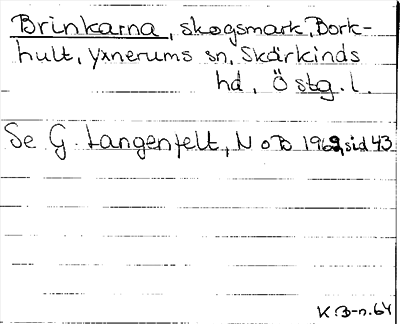 Brinkarna, skogsmark, Bork-
hult, Yxnerums sn, Skärkinds
hd, Östg. l.
Se G. Langenfelt, NoB 1962, sid 43
K.B-n. 64